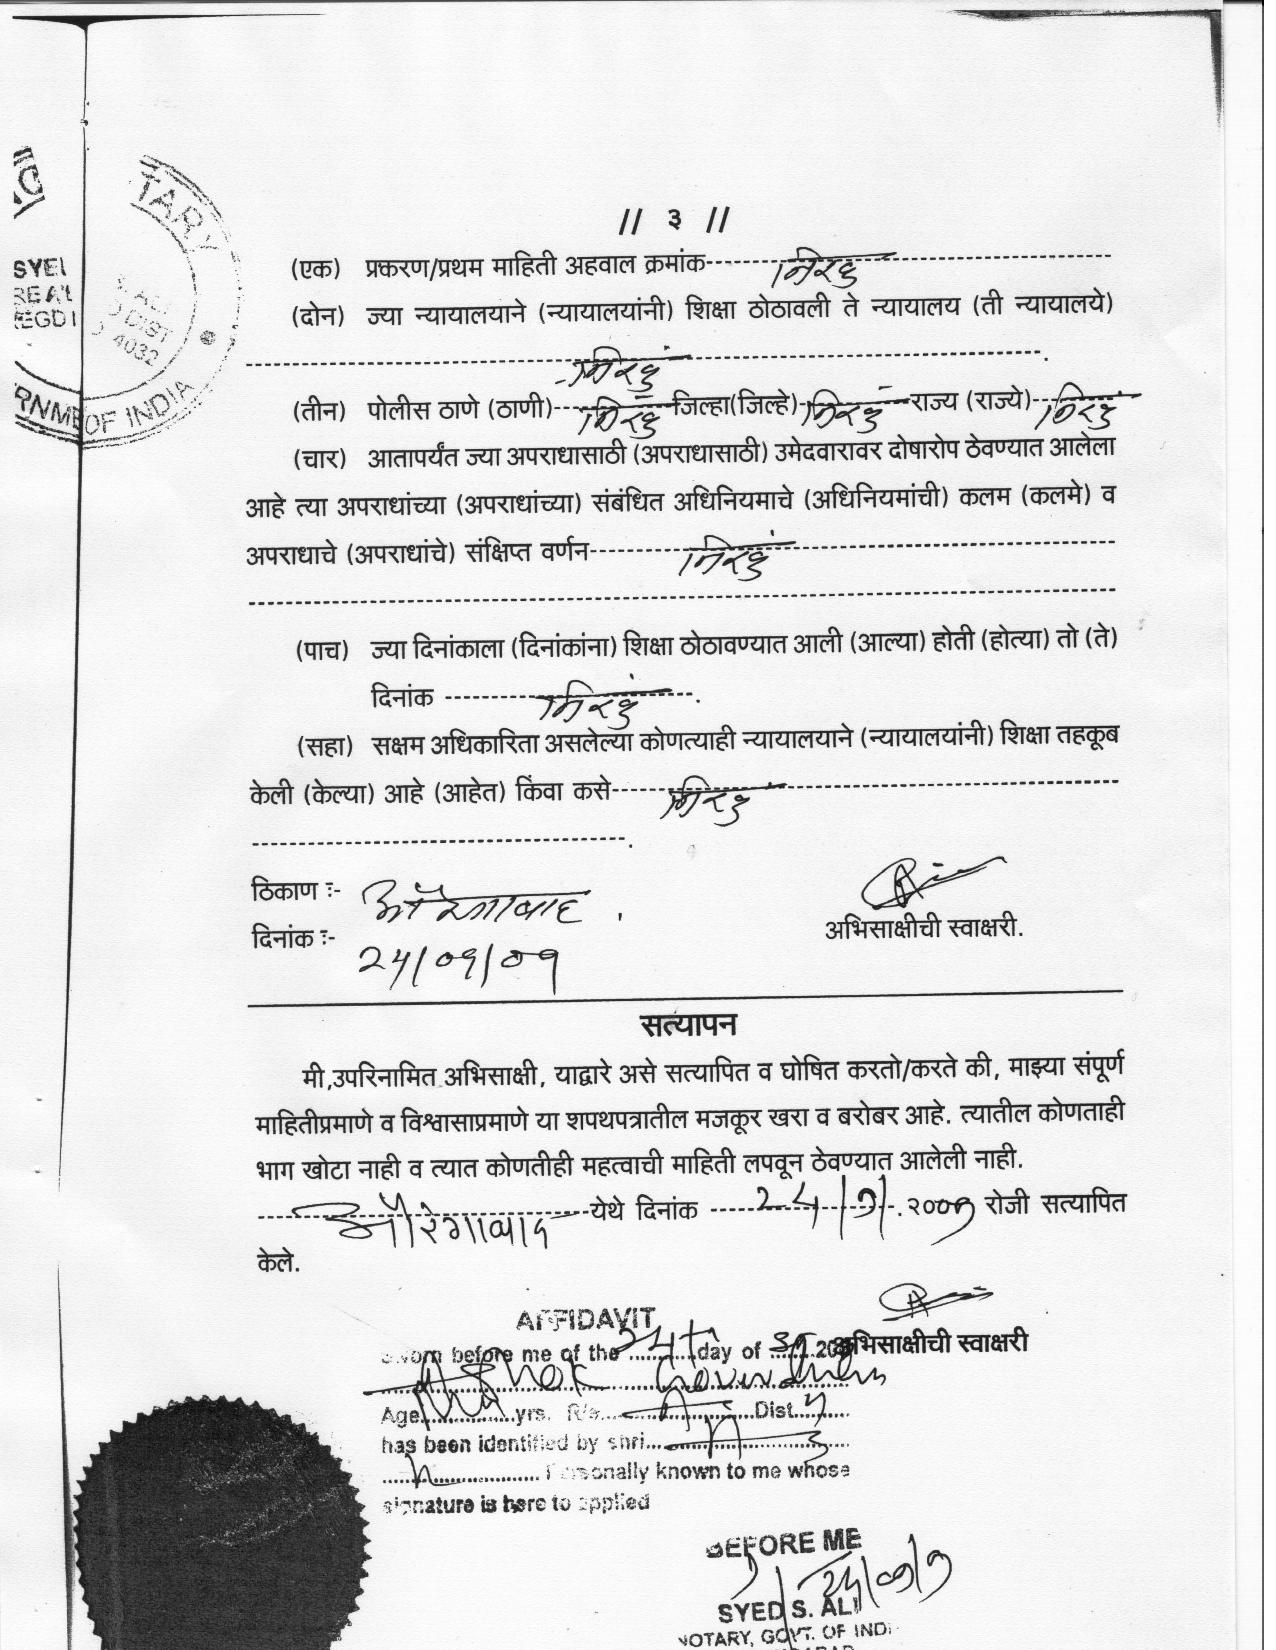 TARY
SYE
S. ALI
DIST
REGD
4032
RNME OF INDIA
// ३ //
(एक) प्रकरण/प्रथम माहिती अहवाल क्रमांक--- निरंक ---
(दोन) ज्या न्यायालयाने (न्यायालयांनी) शिक्षा ठोठावली ते न्यायालय (ती न्यायालये)
--- निरंक ---.
(तीन) पोलीस ठाणे (ठाणी)--- निरंक --- जिल्हा(जिल्हे)- निरंक --- राज्य (राज्ये)--- निरंक
(चार) आतापर्यंत ज्या अपराधासाठी (अपराधासाठी) उमेदवारावर दोषारोप ठेवण्यात आलेला
आहे त्या अपराधांच्या (अपराधांच्या) संबंधित अधिनियमाचे (अधिनियमांची) कलम (कलमे) व
अपराधाचे (अपराधांचे) संक्षिप्त वर्णन--- निरंक ---
(पाच) ज्या दिनांकाला (दिनांकांना) शिक्षा ठोठावण्यात आली (आल्या) होती (होत्या) तो (ते)
दिनांक --- निरंक ---.
(सहा) सक्षम अधिकारिता असलेल्या कोणत्याही न्यायालयाने (न्यायालयांनी) शिक्षा तहकूब
केली (केल्या) आहे (आहेत) किंवा कसे--- निरंक ---
ठिकाण :- औरंगाबाद .
दिनांक :- २५/०९/०९
अभिसाक्षीची स्वाक्षरी.
सत्यापन
मी,उपरिनामित अभिसाक्षी, याद्वारे असे सत्यापित व घोषित करतो/करते की, माझ्या संपूर्ण
माहितीप्रमाणे व विश्वासाप्रमाणे या शपथपत्रातील मजकूर खरा व बरोबर आहे. त्यातील कोणताही
भाग खोटा नाही व त्यात कोणतीही महत्वाची माहिती लपवून ठेवण्यात आलेली नाही.
--- औरंगाबाद --- येथे दिनांक --- २५/९/.२००९ रोजी सत्यापित
केले.
अभिसाक्षीची स्वाक्षरी
AFFIDAVIT
Sworn before me of the ... day of ... 200
Ashok Govindram
Age.......yrs. R/o.......Dist.......
has been identified by shri.......
....... Personally known to me whose
signature is here to applied
BEFORE ME
SYED S. ALI
NOTARY, GOVT. OF INDI